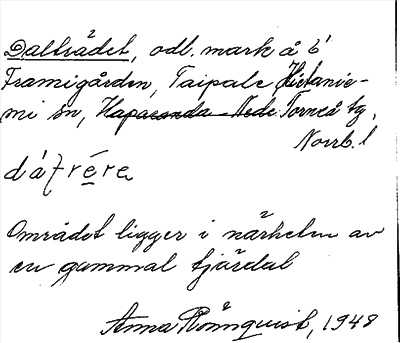 Daltrådet, odl. mark å 6'
Framigården, Taipale, Hietanie-
mi sn, Haparanda - Nede. Torneå tg,
Norrb. l
dátrere
Området ligger i närheten av
en gammal tjärdal
Anna Rönnquist, 1948